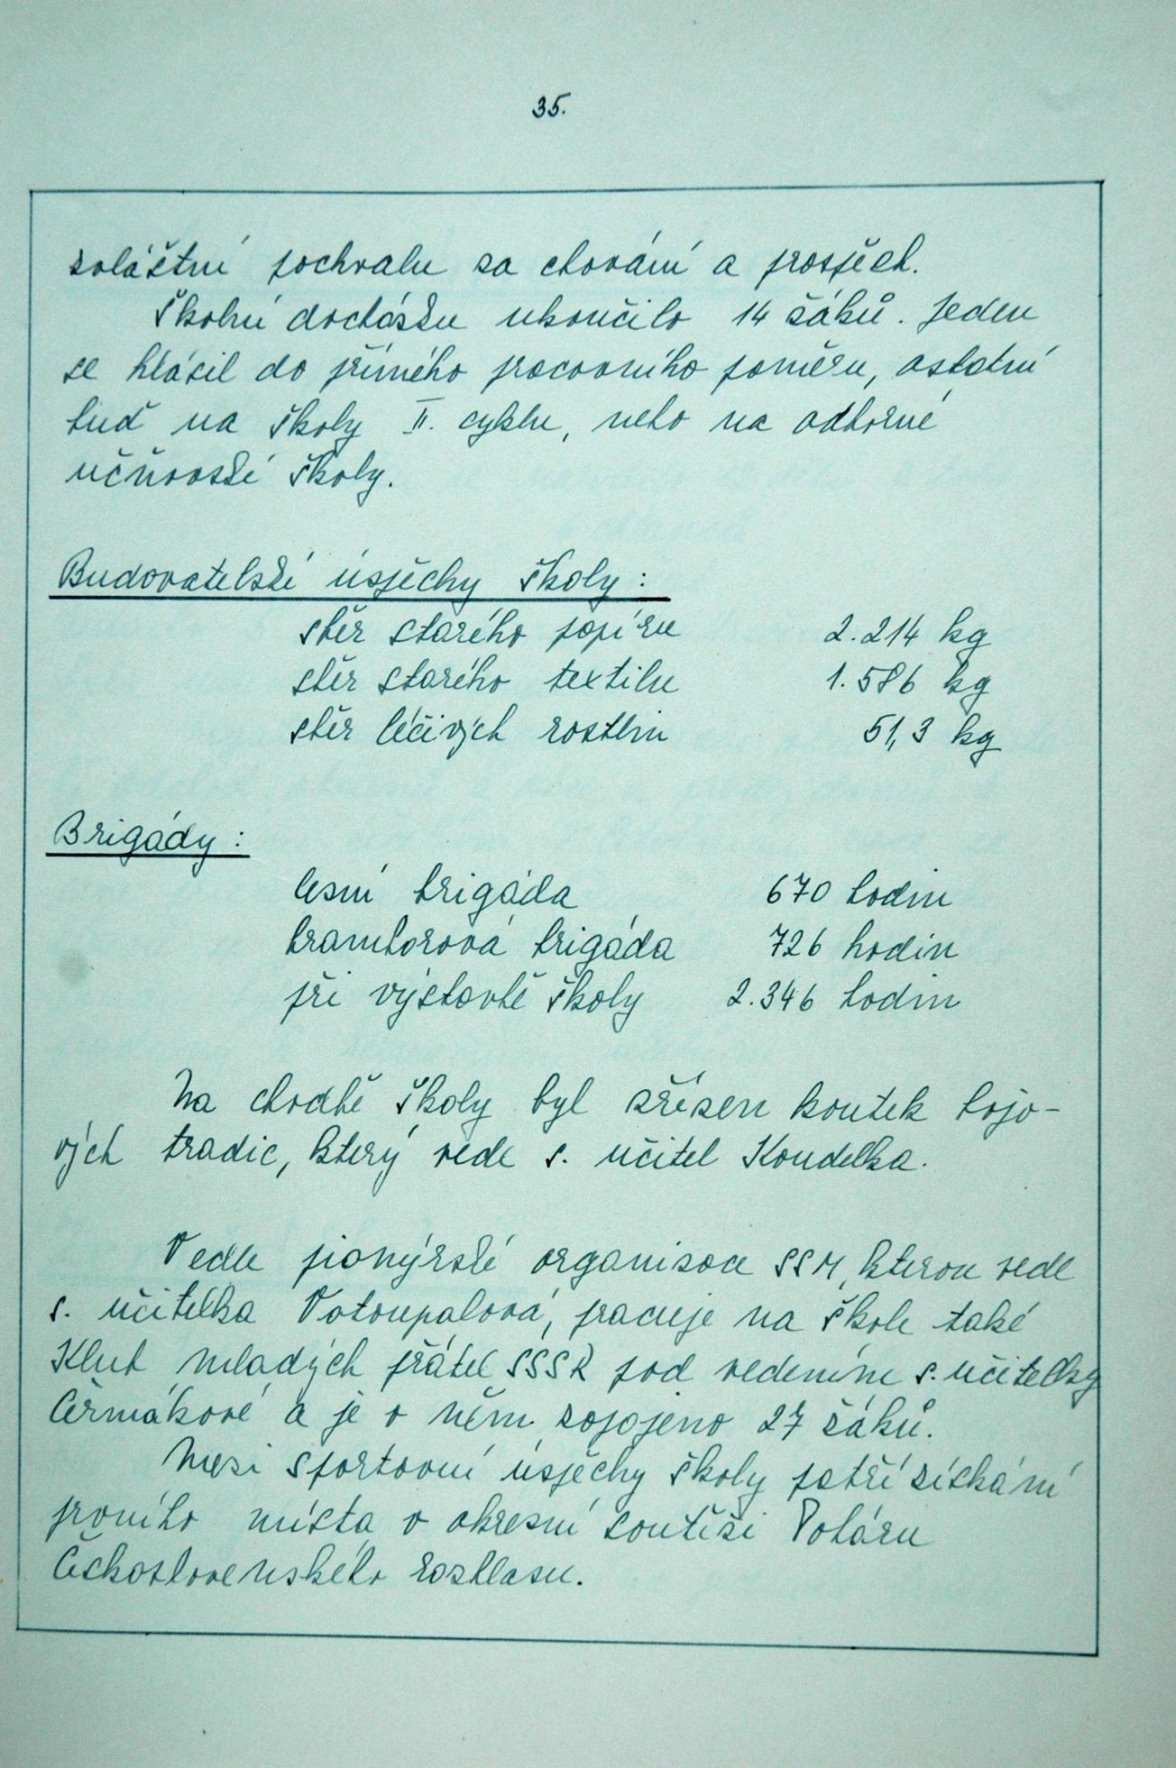 35.
zvláštní pochvalu za chování a prospěch.
Školní docházku ukončilo 14 žáků. Jeden
se hlásil do přímého pracovního poměru, ostatní
buď na školy II. cyklu, nebo na odborné
učňovské školy.
Budovatelské úspěchy školy:
sběr starého papíru 2.214 kg
sběr starého textilu 1.586 kg
sběr léčivých rostlin 51,3 kg
Brigády:
lesní brigáda 670 hodin
bramborová brigáda 726 hodin
při výstavbě školy 2.346 hodin
Na chodbě školy byl zřízen koutek bojo-
vých tradic, který vede s. učitel Koudelka.
Vedle pionýrské organisace SSM, kterou vede
s. učitelka Votoupalová, pracuje na škole také
Klub mladých přátel SSSR pod vedením s. učitelky
Čermákové a je v něm zapojeno 27 žáků.
Mezi sportovní úspěchy školy patří získání
prvního místa v okresní soutěži Poháru
Československého rozhlasu.